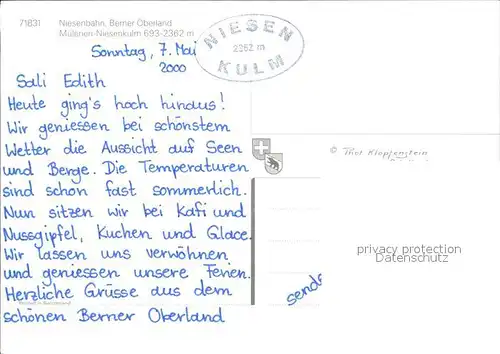 71831 Niesenbahn, Berner Oberland
Mülenen-Niesenkulm 693-2362 m
NIESEN
2362 m
KULM
Sonntag, 7. Mai
2000
Sali Edith
Heute ging's hoch hinaus!
Wir geniessen bei schönstem
Wetter die Aussicht auf Seen
und Berge. Die Temperaturen
sind schon fast sommerlich.
Nun sitzen wir bei Kafi und
Nussgipfel, Kuchen und Glace.
Wir lassen uns verwöhnen
und geniessen unsere Ferien.
Herzliche Grüsse aus dem
schönen Berner Oberland
© Phot Klopfenstein
privacy protection
Datenschutz